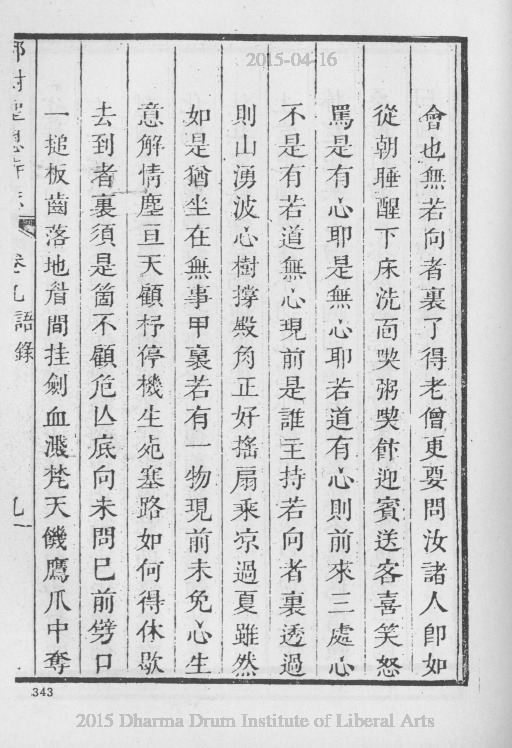 2015-04-16
會也無若向者裏了得老僧更要問汝諸人卽如
從朝睡醒下床洗面喫粥喫飰迎賓送客喜笑怒
罵是有心耶是無心耶若道有心則前來三處心
不是有若道無心現前是誰主持若向者裏透過
則山湧波心樹撐殿角正好搖扇乘凉過夏雖然
如是猶坐在無事甲裏若有一物現前未免心生
意解情塵亘天顧杼停機生死塞路如何得休歇
去到者裏須是箇不顧危亾底向未問已前劈口
一搥板齒落地眉間挂劍血濺梵天饑鷹爪中奪
卷九語錄
九
343
2015 Dharma Drum Institute of Liberal Arts